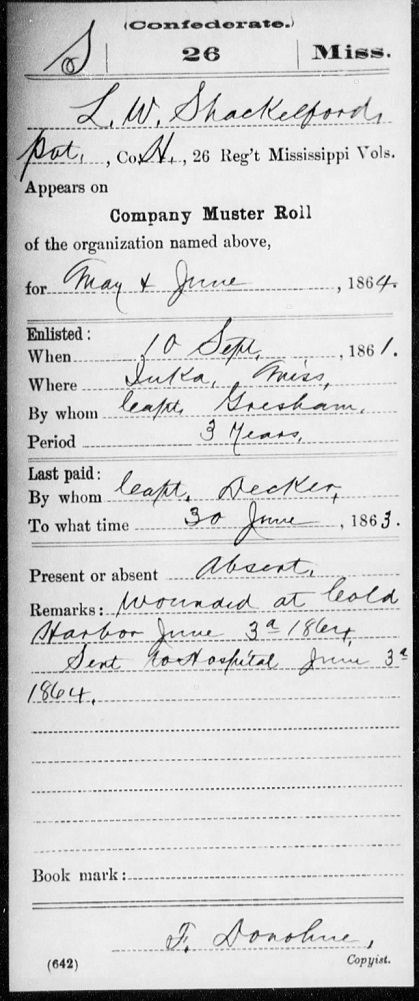 (Confederate.)
S | 26 | Miss.
L. W. Shackelford,
Pvt., Co. H., 26 Reg't Mississippi Vols.
Appears on
Company Muster Roll
of the organization named above,
for May & June, 1864.
Enlisted:
When 10 Sept., 1861.
Where Iuka, Miss,
By whom Capt. Gresham,
Period 3 Years,
Last paid:
By whom Capt. Decker,
To what time 30 June, 1863.
Present or absent Absent.
Remarks: Wounded at Cold
Harbor June 3d 1864,
Sent to Hospital June 3d
1864.
Book mark:
F. Donohue,
(642) Copyist.